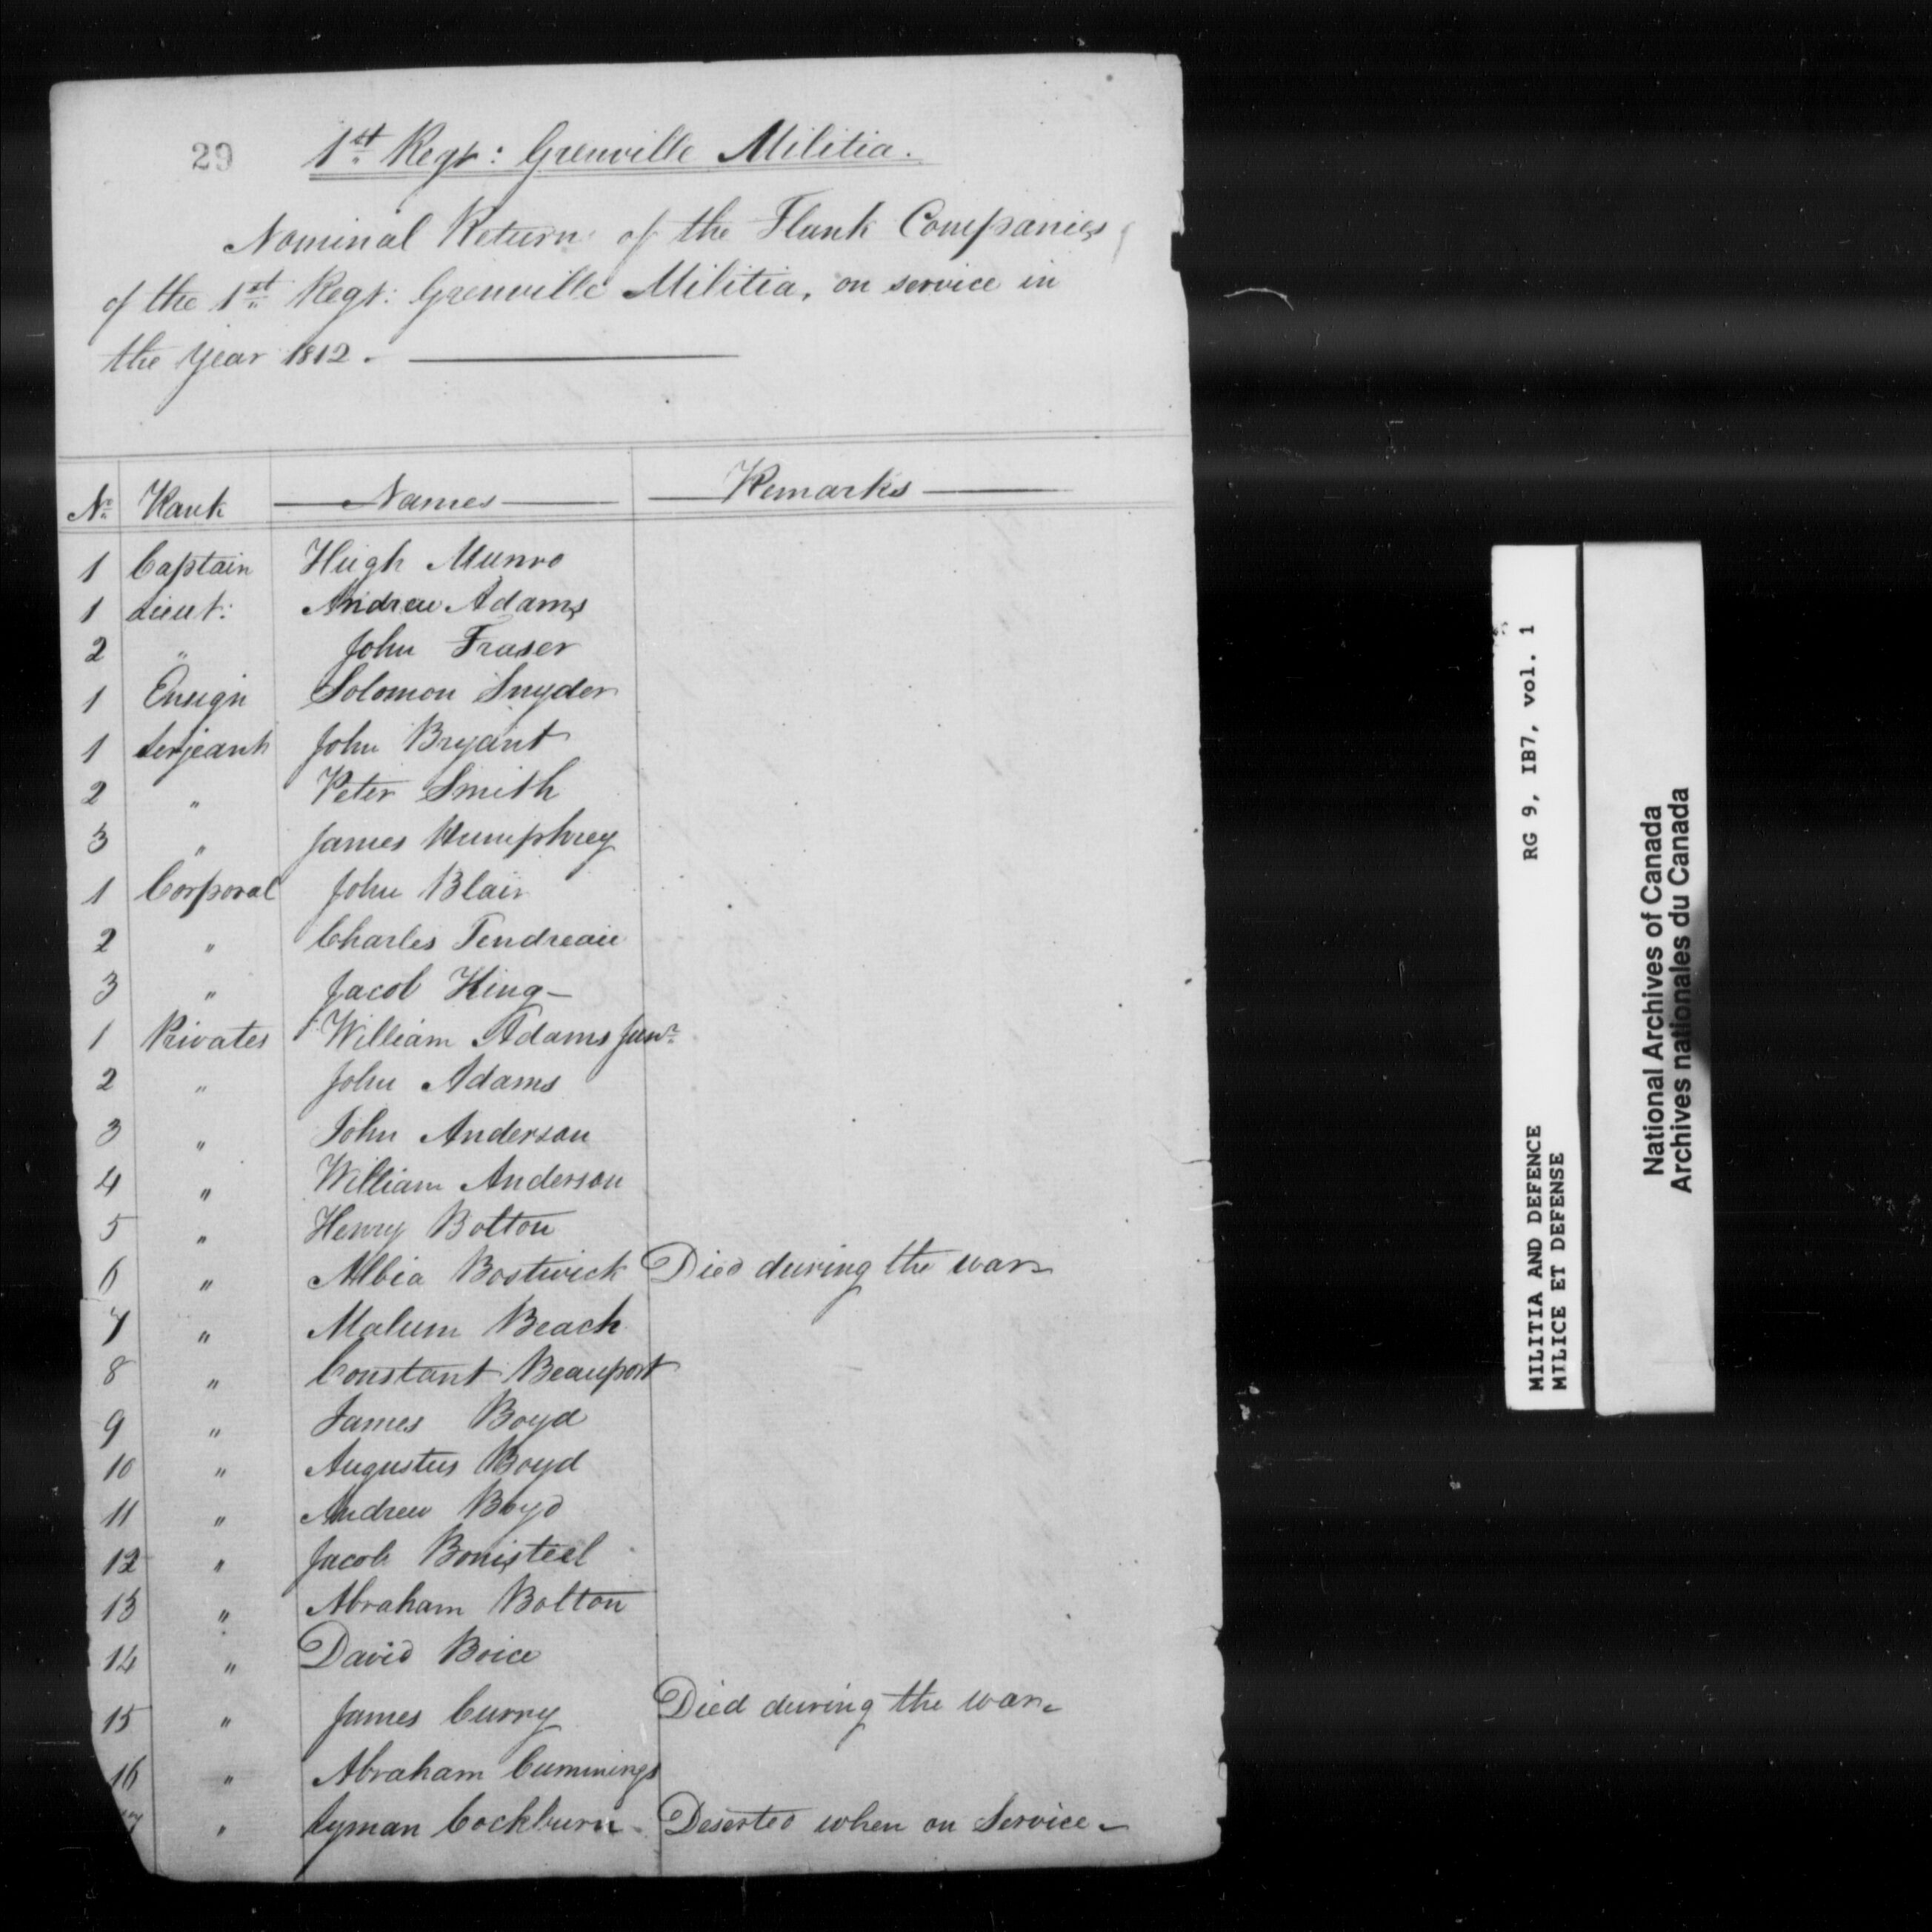 29
1st Regt: Grenville Militia.
Nominal Return of the Flank Companies
of the 1st Regt: Grenville Militia, on service in
the Year 1812.
No Rank Names Remarks
1 Captain Hugh Munro
1 Lieut: Andrew Adams
2 " John Fraser
1 Ensign Solomon Snyder
1 Serjeant John Bryant
2 " Peter Smith
3 " James Humphrey
1 Corporal John Blair
2 " Charles Tendreau
3 " Jacob King
1 Privates William Adams Junr
2 " John Adams
3 " John Anderson
4 " William Anderson
5 " Henry Bolton
6 " Albia Bostwick Died during the war
7 " Malum Beach
8 " Constant Beauport
9 " James Boyd
10 " Augustus Boyd
11 " Andrew Boyd
12 " Jacob Bonisteel
13 " Abraham Bolton
14 " David Boice
15 " James Curry Died during the war
16 " Abraham Cummings
17 " Lyman Cockburn Deserted when on Service
MILITIA AND DEFENCE RG 9, IB7, vol. 1
MILICE ET DEFENSE
National Archives of Canada
Archives nationales du Canada